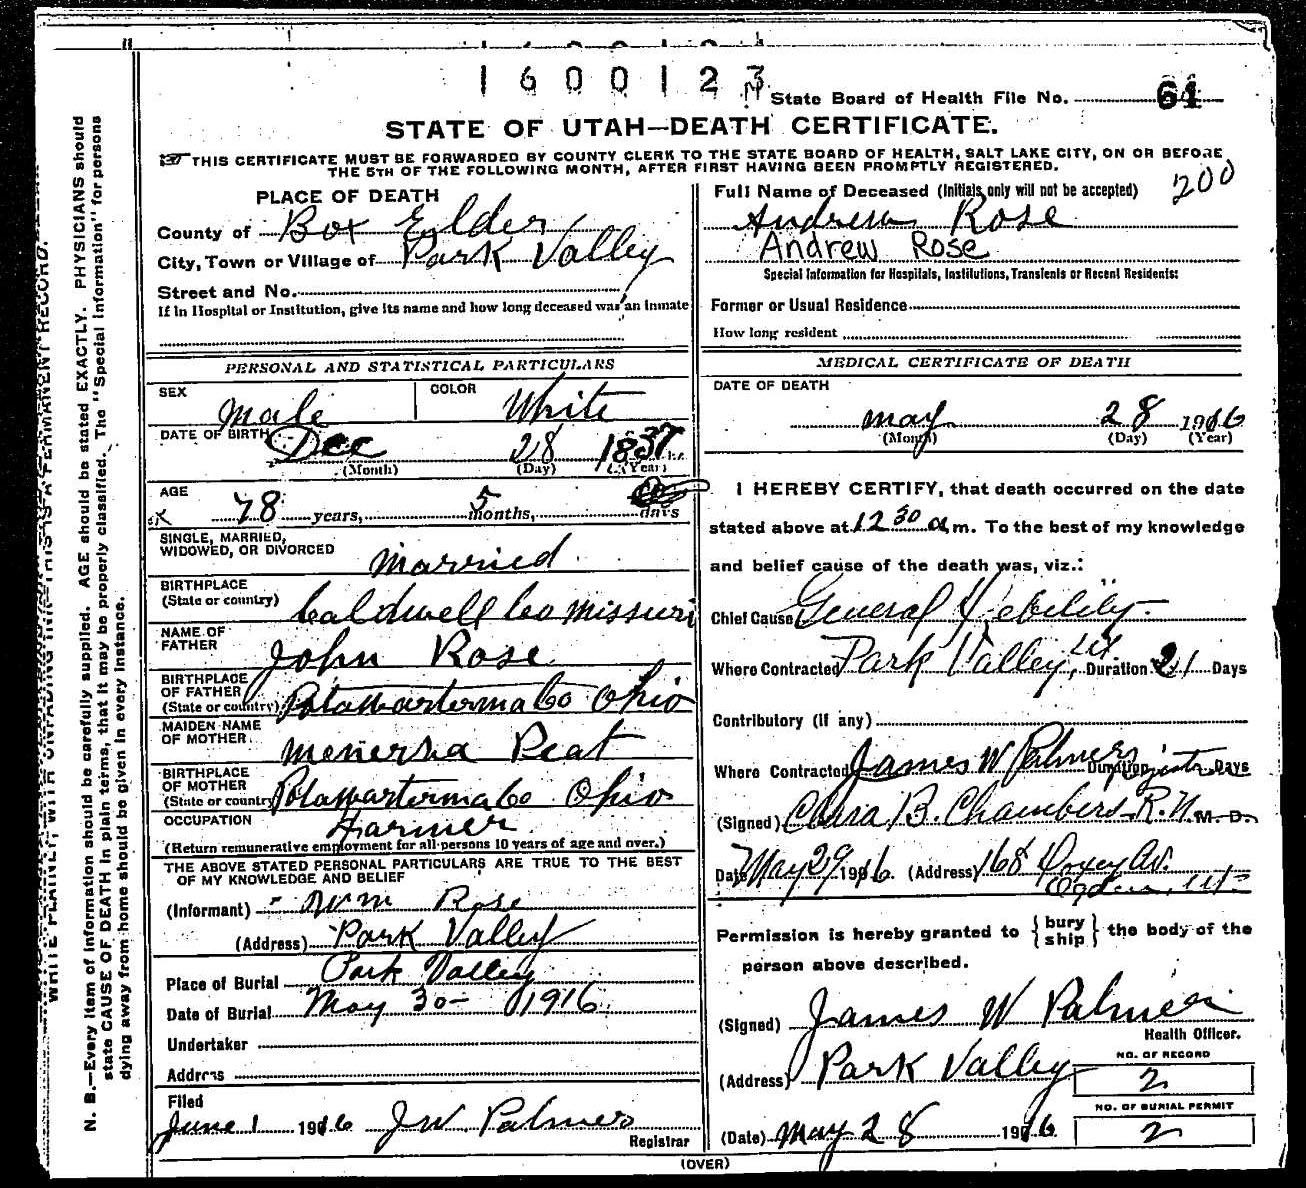 1600123
State Board of Health File No. 61
STATE OF UTAH—DEATH CERTIFICATE.
THIS CERTIFICATE MUST BE FORWARDED BY COUNTY CLERK TO THE STATE BOARD OF HEALTH, SALT LAKE CITY, ON OR BEFORE
THE 5TH OF THE FOLLOWING MONTH, AFTER FIRST HAVING BEEN PROMPTLY REGISTERED.
200
PLACE OF DEATH
County of Box Elder
City, Town or Village of Park Valley
Street and No.
If in Hospital or Institution, give its name and how long deceased was an inmate
Full Name of Deceased (Initials only will not be accepted)
Andrew Rose
Andrew Rose
Special Information for Hospitals, Institutions, Transients or Recent Residents:
Former or Usual Residence
How long resident
PERSONAL AND STATISTICAL PARTICULARS
SEX Male COLOR White
DATE OF BIRTH Dec 28 1837
(Month) (Day) (Year)
AGE
78 years, 5 months, days
SINGLE, MARRIED,
WIDOWED, OR DIVORCED Married
BIRTHPLACE
(State or country) Caldwell Co Missuri
NAME OF
FATHER John Rose
BIRTHPLACE
OF FATHER
(State or country) Ohio
MAIDEN NAME
OF MOTHER Menersha Peat
BIRTHPLACE
OF MOTHER
(State or country) Ohio
OCCUPATION Farmer
(Return remunerative employment for all persons 10 years of age and over.)
THE ABOVE STATED PERSONAL PARTICULARS ARE TRUE TO THE BEST
OF MY KNOWLEDGE AND BELIEF
(Informant) Wm Rose
(Address) Park Valley
Place of Burial Park Valley
Date of Burial May 30- 1916
Undertaker
Address
Filed
June 1 1916 J W Palmer
Registrar
MEDICAL CERTIFICATE OF DEATH
DATE OF DEATH
May 28 1916
(Month) (Day) (Year)
I HEREBY CERTIFY, that death occurred on the date
stated above at 12 30 a.m. To the best of my knowledge
and belief cause of the death was, viz.:
Chief Cause General Debility.
Where Contracted Park Valley, Ut. Duration 21 Days
Contributory (If any)
Where Contracted James W Palmer Duration Days
(Signed) Clara B. Chambers R.N. M. D.
Date May 29 1916. (Address) 168 Doxey Av.
Ogden, Ut.
Permission is hereby granted to { bury ship } the body of the
person above described.
(Signed) James W Palmer
Health Officer.
(Address) Park Valley
NO. OF RECORD
2
NO. OF BURIAL PERMIT
2
(Date) May 28 1916.
(OVER)
N. B.—Every item of information should be carefully supplied. AGE should be stated EXACTLY. PHYSICIANS should
state CAUSE OF DEATH in plain terms, that it may be properly classified. The "Special Information" for persons
dying away from home should be given in every instance.